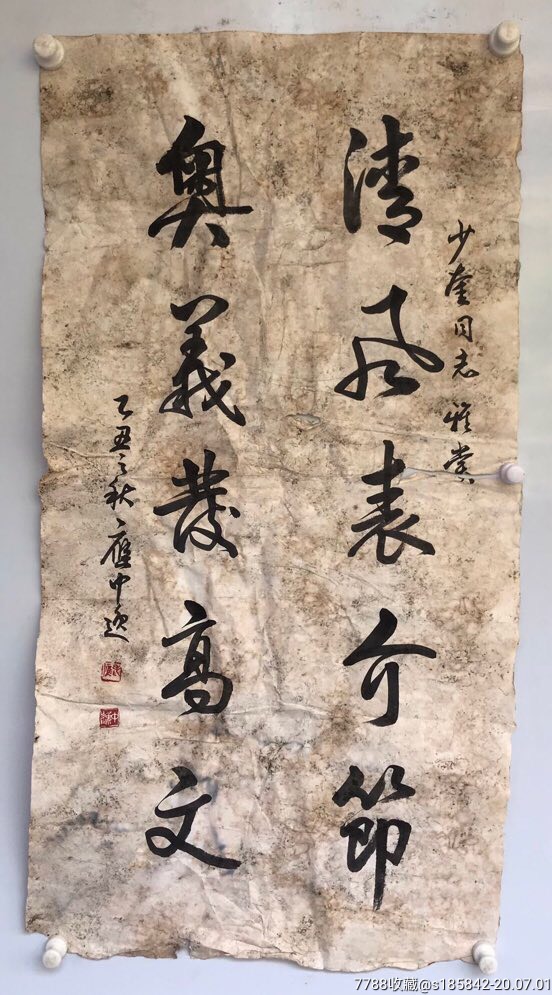 少奎同志雅赏
清风表介節
奥義發高文
乙丑之秋
7788收藏@s185842-20.07.01